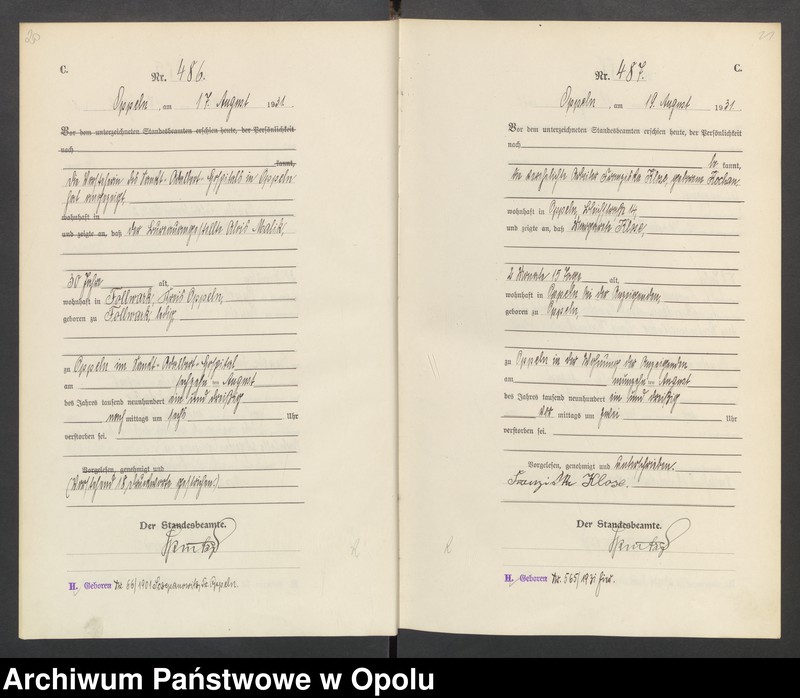 C.
Nr. 486.
Oppeln, am 17. August 1931.
Vor dem unterzeichneten Standesbeamten erschien heute, der Persönlichkeit
nach
kannt,
die Vorsteherin des Sankt-Adalbert-Hospitals in Oppeln
hat angezeigt
wohnhaft in
und zeigte an, daß der Büroangestellte Alois Malik,
30 Jahre alt,
wohnhaft in Follwark, Kreis Oppeln,
geboren zu Follwark, ledig
zu Oppeln im Sankt-Adalbert-Hospital
am sechzehn ten August
des Jahres tausend neunhundert ein und dreißig
nach mittags um sechs Uhr
verstorben sei.
Vorgelesen, genehmigt und
(Vorstehend 18 Druckworte gestrichen.)
Der Standesbeamte.
H. Geboren Nr. 66/1901 Sczepanowitz, Kr. Oppeln.
C.
Nr. 487.
Oppeln, am 19. August 1931.
Vor dem unterzeichneten Standesbeamten erschien heute, der Persönlichkeit
nach
be kannt,
die verehelichte Arbeiter Franziska Klose, geborene Kochan
wohnhaft in Oppeln,
und zeigte an, daß Margarete Klose,
2 Monate 15 Tage alt,
wohnhaft in Oppeln bei der Anzeigenden,
geboren zu Oppeln,
zu Oppeln in der Wohnung der Anzeigenden
am neunzehn ten August
des Jahres tausend neunhundert ein und dreißig
vor mittags um zwei Uhr
verstorben sei.
Vorgelesen, genehmigt und unterschrieben.
Franziska Klose.
Der Standesbeamte.
H. Geboren Nr. 565/1931 hier.
Archiwum Państwowe w Opolu